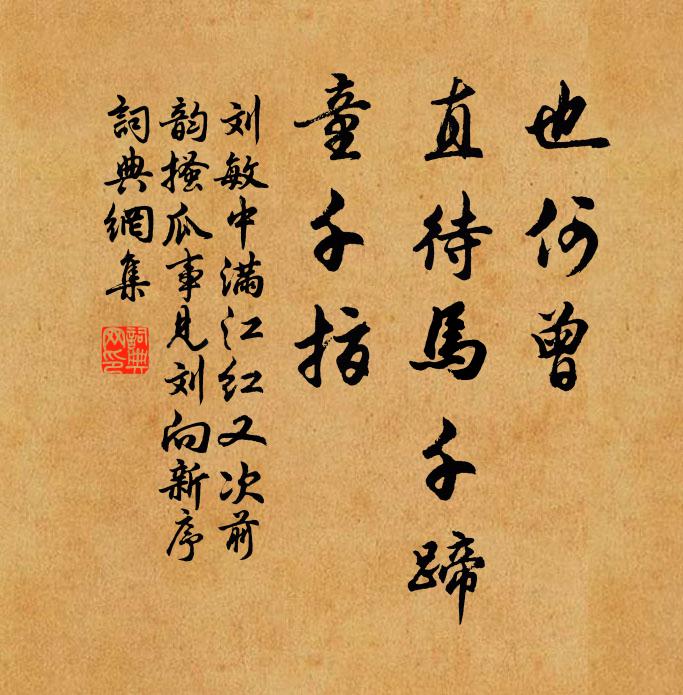 也何曾
直待馬千蹄
童千指
刘敏中满江红又次前
韵搔瓜事见刘向新序
詞典網集
詞典
网印